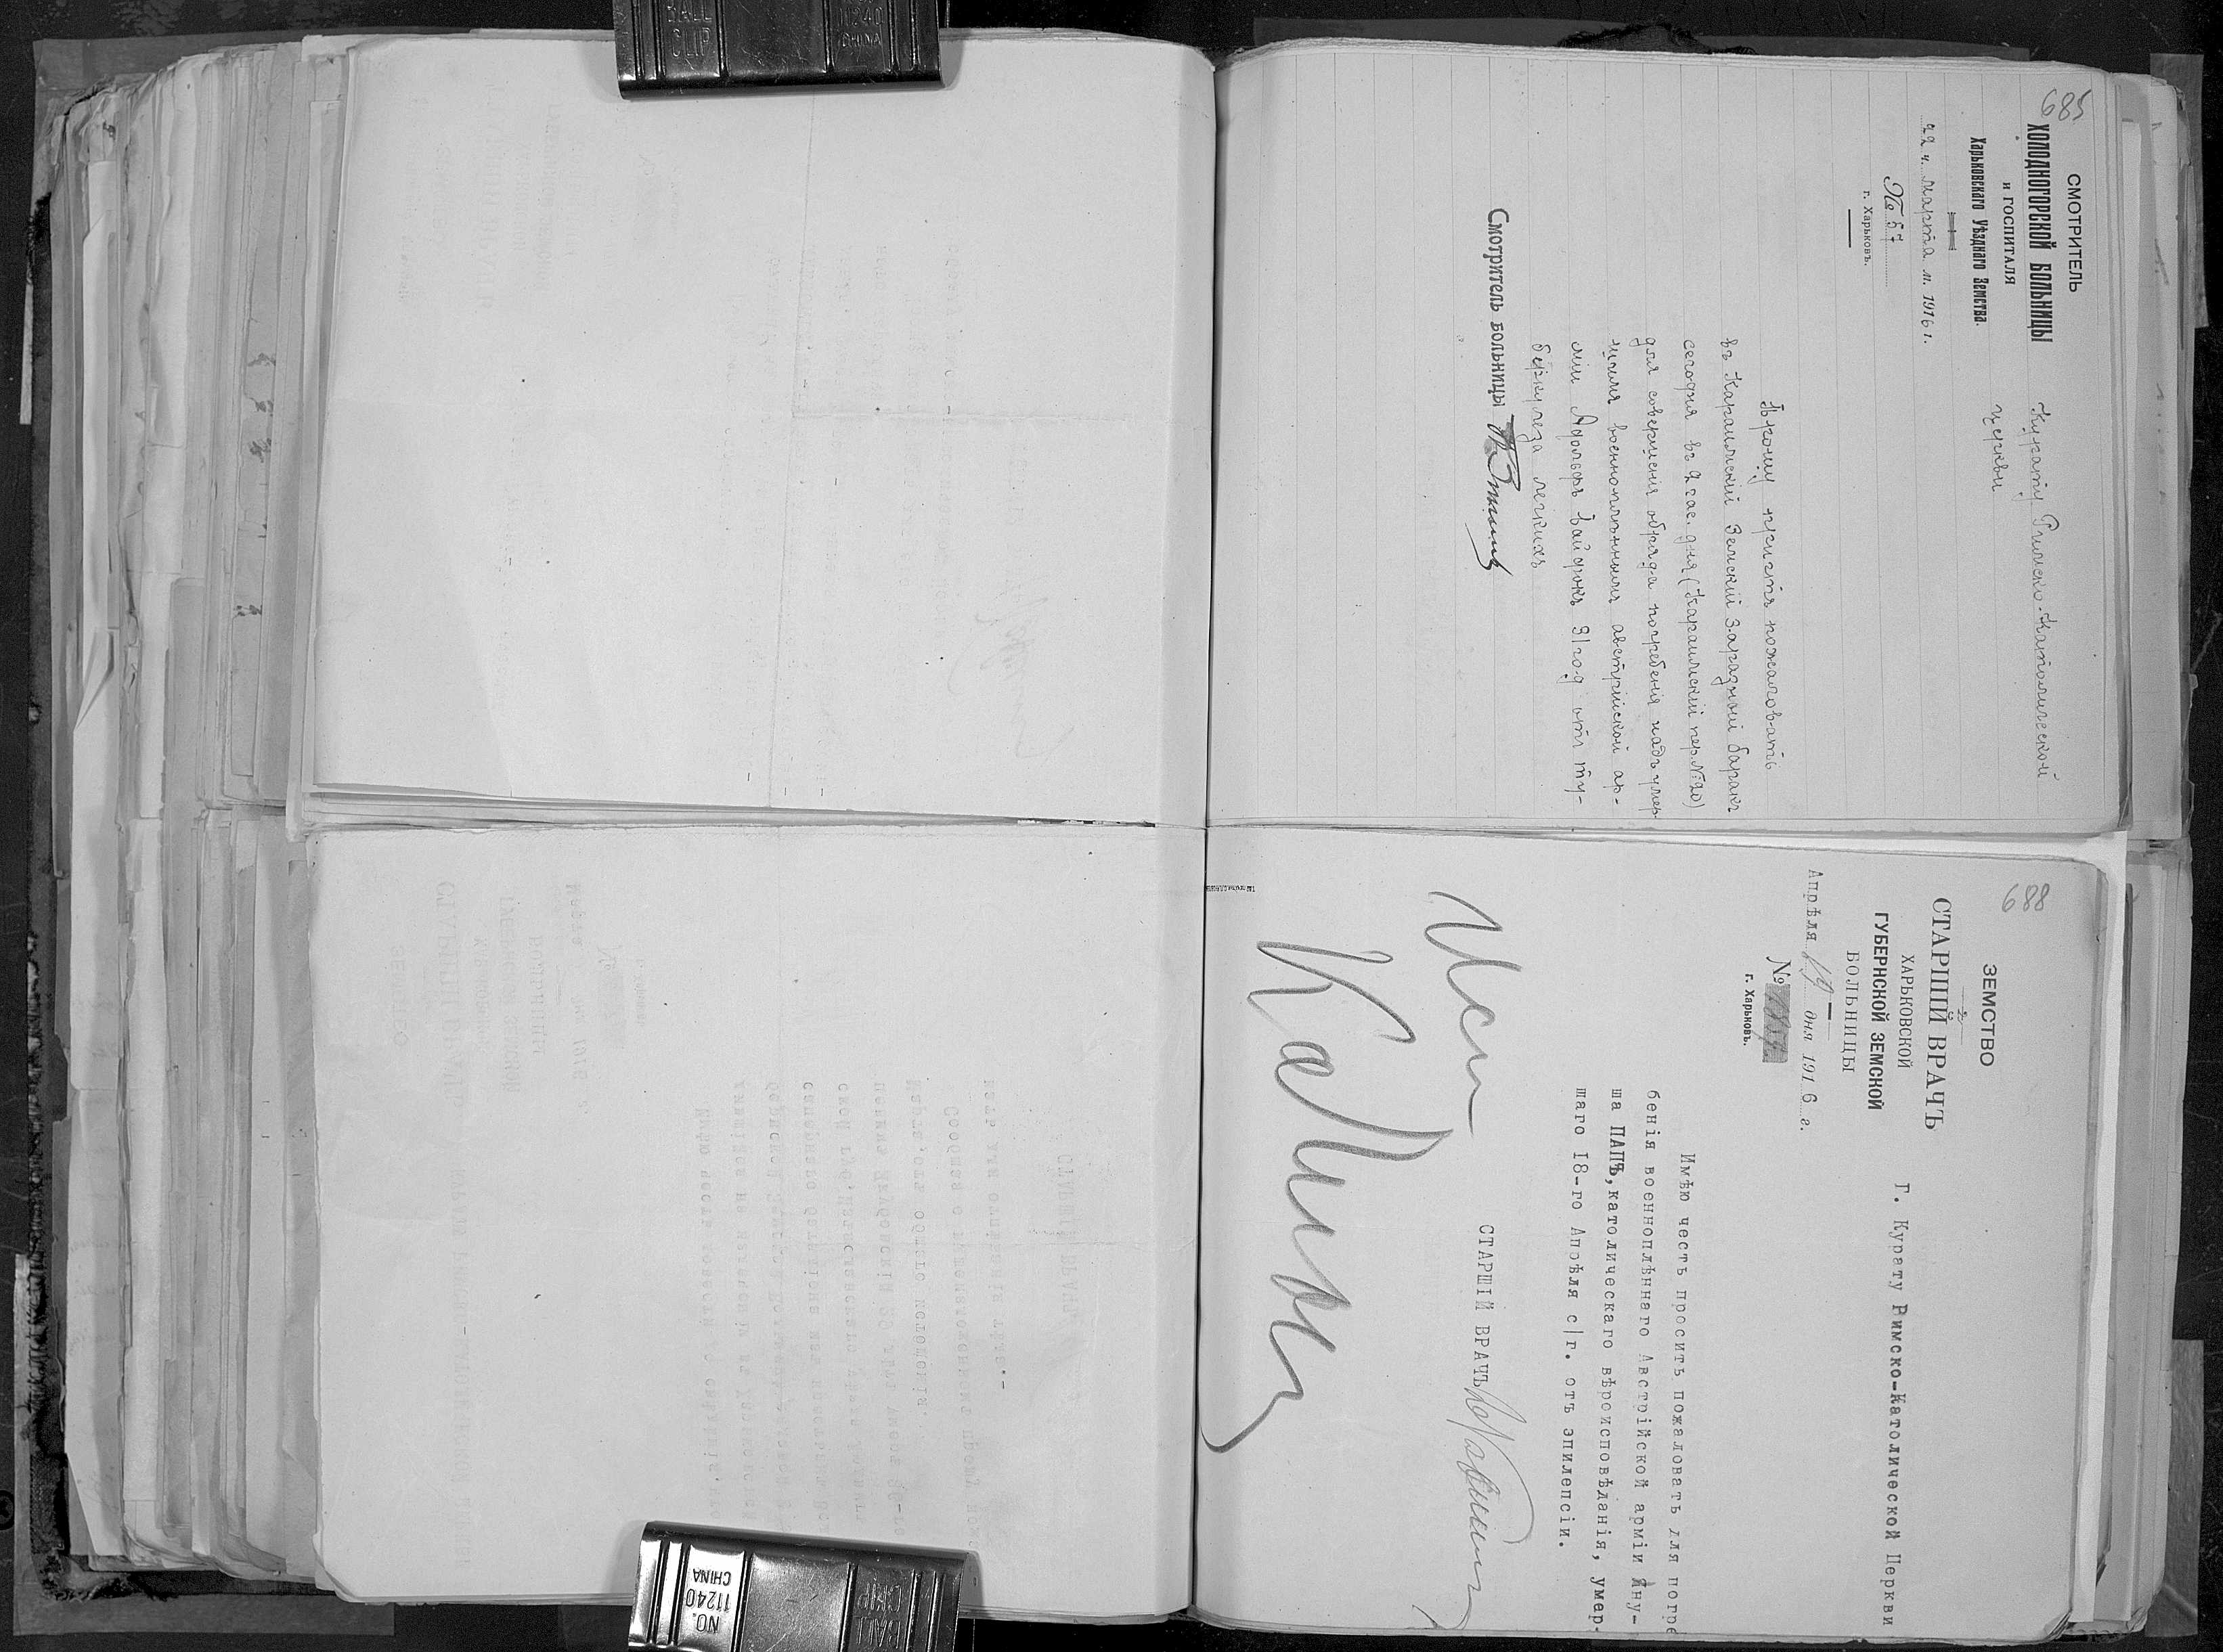 685
СМОТРИТЕЛЬ
ХОЛОДНОГОРСКОЙ БОЛЬНИЦЫ
и ГОСПИТАЛЯ
Харьковскаго Уѣзднаго Земства.
22 ч. марта м. 1916 г.
№ 57
г. Харьковъ.
Курату Римско-Католической
церкви
Прошу причтъ пожаловать
въ Караимскій Земскій Заразный баракъ
сегодня въ 2 час. дня (Караимскій пер. № 20)
для совершенія обряда погребенія надъ умер-
шимъ военноплѣннымъ австрійской ар-
міи Адольфъ Вайдфокъ 31 год отъ ту-
беркулеза легкихъ
Смотритель больницы
688
ЗЕМСТВО
СТАРШІЙ ВРАЧЪ
ХАРЬКОВСКОЙ
ГУБЕРНСКОЙ ЗЕМСКОЙ
БОЛЬНИЦЫ
Апрѣля 19 дня 1916 г.
№
г. Харьковъ.
Г. Курату Римско-Католической Церкви
Имѣю честь просить пожаловать для погре
бенія военноплѣннаго Австрійской арміи Яну-
ша ПАПЪ, католическаго вѣроисповѣданія, умер-
шаго 18-го Апрѣля с/г. отъ эпилепсіи.
СТАРШІЙ ВРАЧЪ
BALL
CLIP
NO.
11240
CHINA